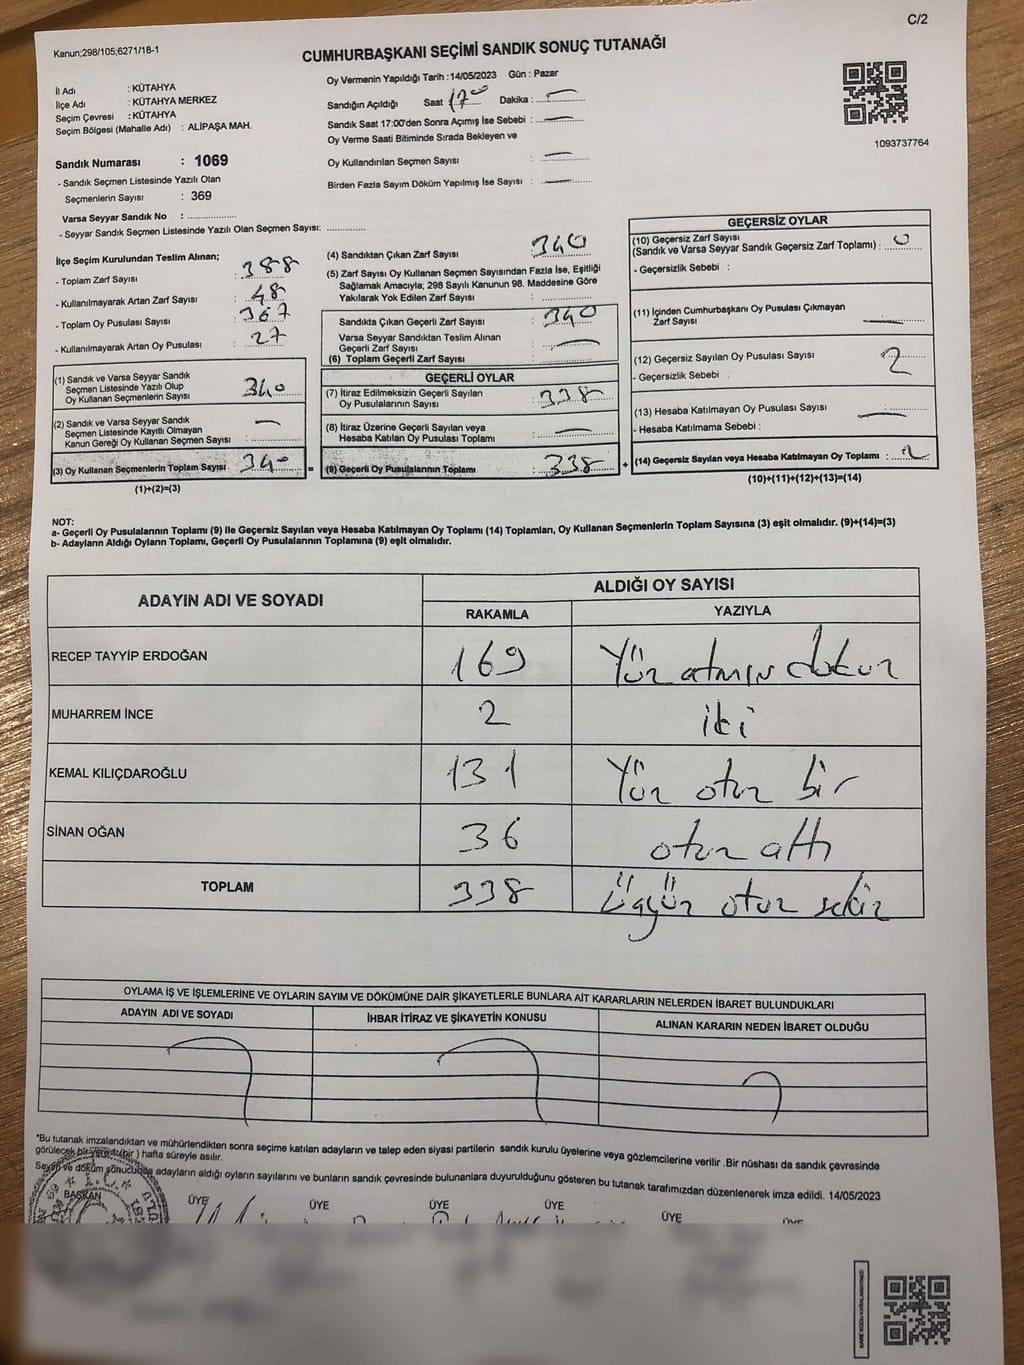 C/2
Kanun;298/105;6271/18-1
CUMHURBAŞKANI SEÇİMİ SANDIK SONUÇ TUTANAĞI
İl Adı : KÜTAHYA
İlçe Adı : KÜTAHYA MERKEZ
Seçim Çevresi : KÜTAHYA
Seçim Bölgesi (Mahalle Adı) : ALİPAŞA MAH.
Sandık Numarası : 1069
- Sandık Seçmen Listesinde Yazılı Olan
Seçmenlerin Sayısı : 369
Varsa Seyyar Sandık No : ................
- Seyyar Sandık Seçmen Listesinde Yazılı Olan Seçmen Sayısı: ..............
Oy Vermenin Yapıldığı Tarih :14/05/2023 Gün : Pazar
Sandığın Açıldığı Saat 17:00 Dakika : —
Sandık Saat 17:00'den Sonra Açımış İse Sebebi : —
Oy Verme Saati Bitiminde Sırada Bekleyen ve
Oy Kullandırılan Seçmen Sayısı : —
Birden Fazla Sayım Döküm Yapılmış İse Sayısı : —
1093737764
İlçe Seçim Kurulundan Teslim Alınan;
- Toplam Zarf Sayısı : 388
- Kullanılmayarak Artan Zarf Sayısı : 48
- Toplam Oy Pusulası Sayısı : 367
- Kullanılmayarak Artan Oy Pusulası : 27
(1) Sandık ve Varsa Seyyar Sandık
Seçmen Listesinde Yazılı Olup
Oy Kullanan Seçmenlerin Sayısı : 340
(2) Sandık ve Varsa Seyyar Sandık
Seçmen Listesinde Kayıtlı Olmayan
Kanun Gereği Oy Kullanan Seçmen Sayısı : —
(3) Oy Kullanan Seçmenlerin Toplam Sayısı : 340 =
(1)+(2)=(3)
(4) Sandıktan Çıkan Zarf Sayısı : 340
(5) Zarf Sayısı Oy Kullanan Seçmen Sayısından Fazla İse, Eşitliği
Sağlamak Amacıyla; 298 Sayılı Kanunun 98. Maddesine Göre
Yakılarak Yok Edilen Zarf Sayısı : ................
Sandıkta Çıkan Geçerli Zarf Sayısı : 340
Varsa Seyyar Sandıktan Teslim Alınan
Geçerli Zarf Sayısı : —
(6) Toplam Geçerli Zarf Sayısı :
GEÇERLİ OYLAR
(7) İtiraz Edilmeksizin Geçerli Sayılan
Oy Pusulalarının Sayısı : 338
(8) İtiraz Üzerine Geçerli Sayılan veya
Hesaba Katılan Oy Pusulası Toplamı : —
(9) Geçerli Oy Pusulalarının Toplamı : 338 +
GEÇERSİZ OYLAR
(10) Geçersiz Zarf Sayısı
(Sandık ve Varsa Seyyar Sandık Geçersiz Zarf Toplamı) : 0
- Geçersizlik Sebebi :
(11) İçinden Cumhurbaşkanı Oy Pusulası Çıkmayan
Zarf Sayısı : —
(12) Geçersiz Sayılan Oy Pusulası Sayısı : 2
- Geçersizlik Sebebi :
(13) Hesaba Katılmayan Oy Pusulası Sayısı : —
- Hesaba Katılmama Sebebi :
(14) Geçersiz Sayılan veya Hesaba Katılmayan Oy Toplamı : 2
(10)+(11)+(12)+(13)=(14)
NOT:
a- Geçerli Oy Pusulalarının Toplamı (9) ile Geçersiz Sayılan veya Hesaba Katılmayan Oy Toplamı (14) Toplamları, Oy Kullanan Seçmenlerin Toplam Sayısına (3) eşit olmalıdır. (9)+(14)=(3)
b- Adayların Aldığı Oyların Toplamı, Geçerli Oy Pusulalarının Toplamına (9) eşit olmalıdır.
ADAYIN ADI VE SOYADI
ALDIĞI OY SAYISI
RAKAMLA YAZIYLA
RECEP TAYYİP ERDOĞAN 169 Yüz atmış dokuz
MUHARREM İNCE 2 iki
KEMAL KILIÇDAROĞLU 131 Yüz otuz bir
SİNAN OĞAN 36 otuz altı
TOPLAM 338 Üçyüz otuz sekiz
OYLAMA İŞ VE İŞLEMLERİNE VE OYLARIN SAYIM VE DÖKÜMÜNE DAİR ŞİKAYETLERLE BUNLARA AİT KARARLARIN NELERDEN İBARET BULUNDUKLARI
ADAYIN ADI VE SOYADI İHBAR İTİRAZ VE ŞİKAYETİN KONUSU ALINAN KARARIN NEDEN İBARET OLDUĞU
"Bu tutanak imzalandıktan ve mühürlendikten sonra seçime katılan adayların ve talep eden siyasi partilerin sandık kurulu üyelerine veya gözlemcilerine verilir .Bir nüshası da sandık çevresinde
görülecek bir yere (bir) hafta süreyle asılır.
Sayım ve döküm sonucunda adayların aldığı oyların sayılarını ve bunların sandık çevresinde bulunanlara duyurulduğunu gösteren bu tutanak tarafımızdan düzenlenerek imza edildi. 14/05/2023
BAŞKAN ÜYE ÜYE ÜYE ÜYE ÜYE ÜYE